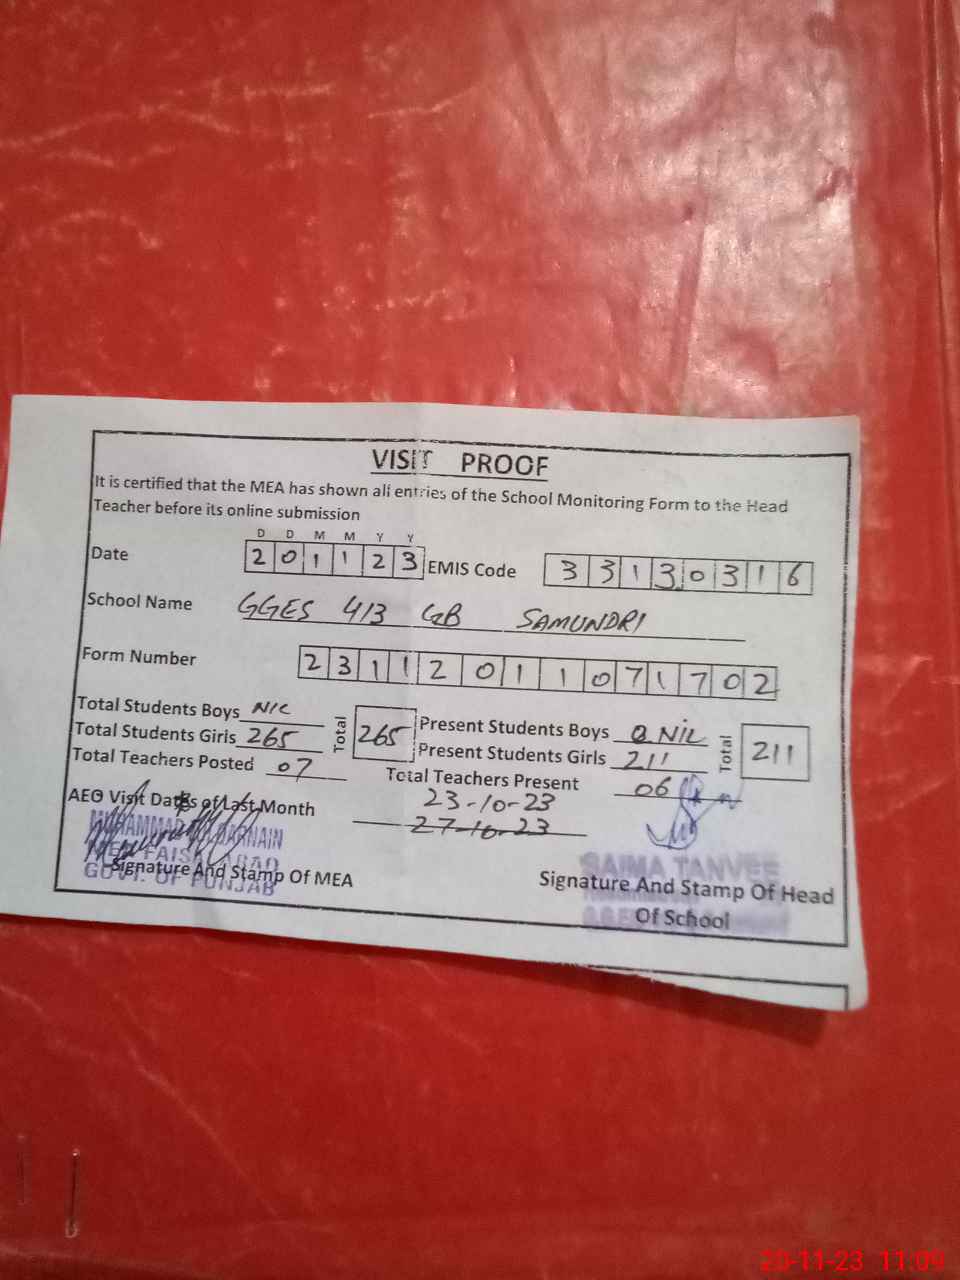 VISIT PROOF
It is certified that the MEA has shown all entries of the School Monitoring Form to the Head
Teacher before its online submission
D D M M Y Y
Date 2 0 1 1 2 3 EMIS Code 3 3 1 3 0 3 1 6
School Name GGES 413 GB SAMUNDRI
Form Number 2 3 1 1 2 0 1 1 0 7 1 7 0 2
Total Students Boys NIL Total 265 Present Students Boys NIL Total 211
Total Students Girls 265 Present Students Girls 211
Total Teachers Posted 07 Total Teachers Present 06
AEO Visit Dates of Last Month 23-10-23
27-10-23
MUHAMMAD
MEA FAISALABAD
GOVT. OF PUNJAB
Signature And Stamp Of MEA
SAIMA TANVEE
Signature And Stamp Of Head
Of School
20-11-23 11:09